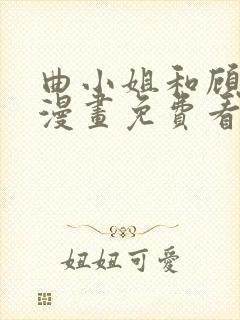 曲小姐和顾
漫畫免費看
妞妞可愛